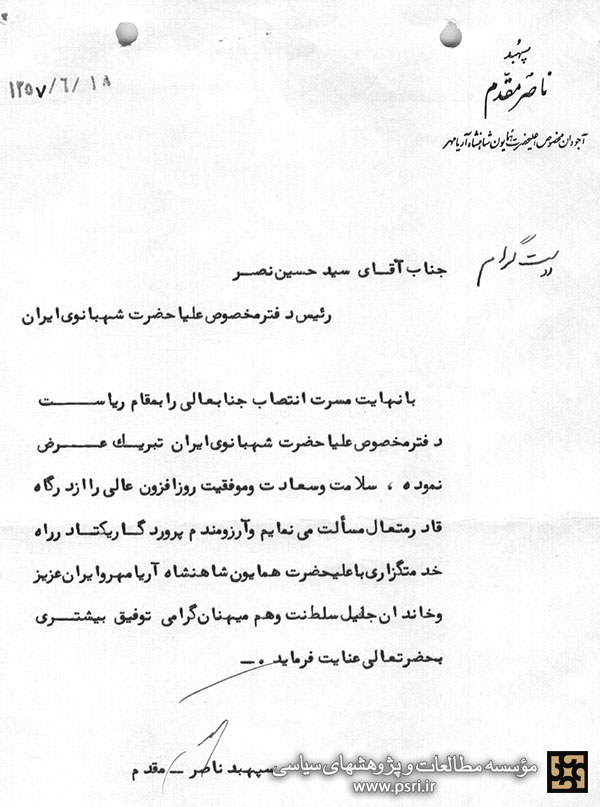 سپهبد
ناصر مقدّم
آجودان مخصوص اعلیحضرت همایون شاهنشاه آریامهر
۱۳۵۷/۶/۱۸
دوست گرام
جناب آقای سید حسین نصر
رئیس دفتر مخصوص علیاحضرت شهبانوی ایران
با نهایت مسرت انتصاب جنابعالی را بمقام ریاست
دفتر مخصوص علیاحضرت شهبانوی ایران تبریک عرض
نموده ، سلامت و سعادت و موفقیت روزافزون عالی را از درگاه
قادر متعال مسألت می نمایم و آرزومندم پروردگار یکتا در راه
خدمتگزاری باعلیحضرت همایون شاهنشاه آریامهر و ایران عزیز
و خاندان جلیل سلطنت و هم میهنان گرامی توفیق بیشتری
بحضرتعالی عنایت فرماید .ـ
سپهبد ناصر ـ مقدم
مؤسسه مطالعات و پژوهشهای سیاسی
www.psri.ir